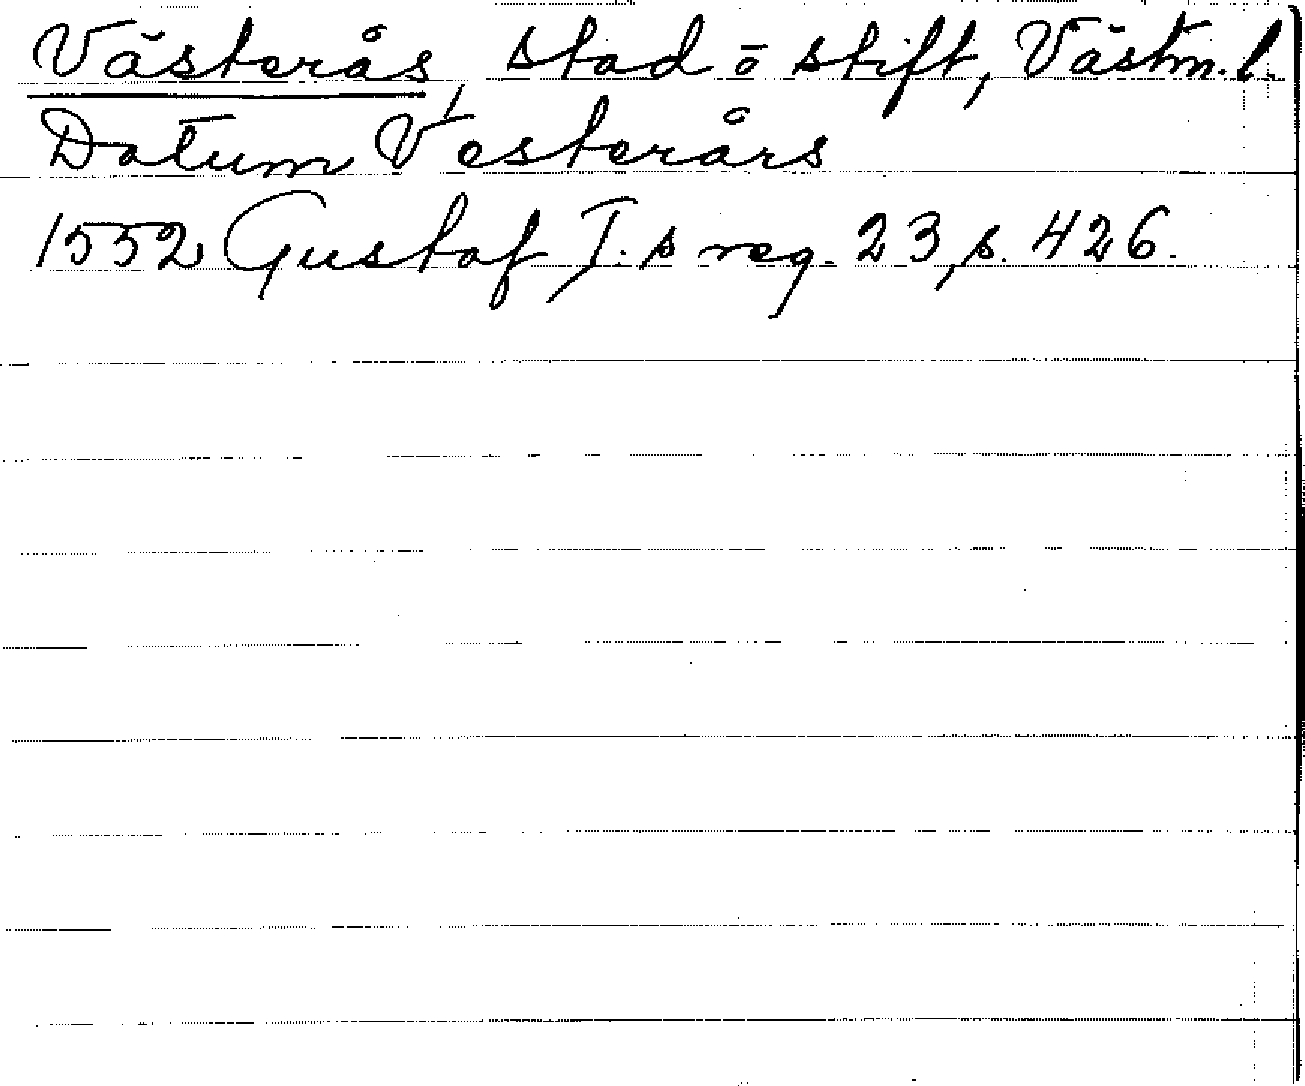 Västerås, stad o stift, Västm. l.
Datum Vesterårs
1552 Gustaf I.s reg. 23, s. 426.